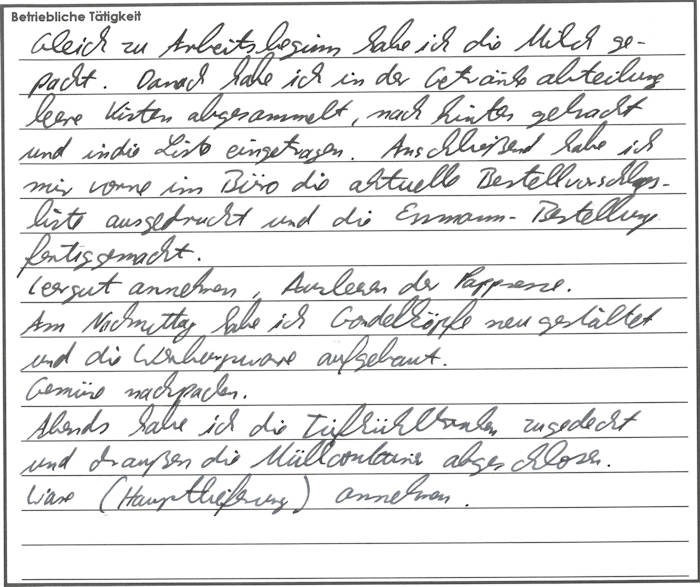 Betriebliche Tätigkeit
Gleich zu Arbeitsbeginn habe ich die Milch ge-
packt. Danach habe ich in der Getränkeabteilung
leere Kisten abgesammelt, nach hinten gebracht
und in die Liste eingetragen. Anschließend habe ich
mir vorne im Büro die aktuelle Bestellvorschlags-
liste ausgedruckt und die Ermann-Bestellung
fertiggemacht.
Leergut annehmen, Ausleeren der Pappresse.
Am Nachmittag habe ich Gondelköpfe neu gestaltet
und die Werbungsware aufgebaut.
Gemüse nachpacken.
Abends habe ich die Tiefkühltruhen zugedeckt
und draußen die Müllcontainer abgeschlossen.
Ware (Hauptlieferung) annehmen.